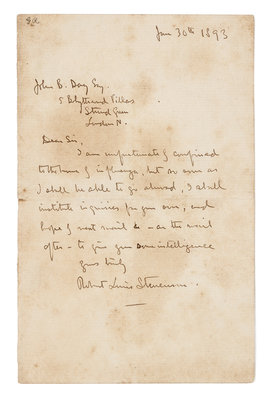 Jan 30th 1893
John B. Day Esq.
5 Blythwood Villas
Stroud Green
London N.
Dear Sir,
I am unfortunately confined
to the house by influenza, but as soon as
I shall be able to go abroad, I shall
institute inquiries for your son; and
hope by next mail – or the mail
after – to give you some intelligence
Yours truly
Robert Louis Stevenson.